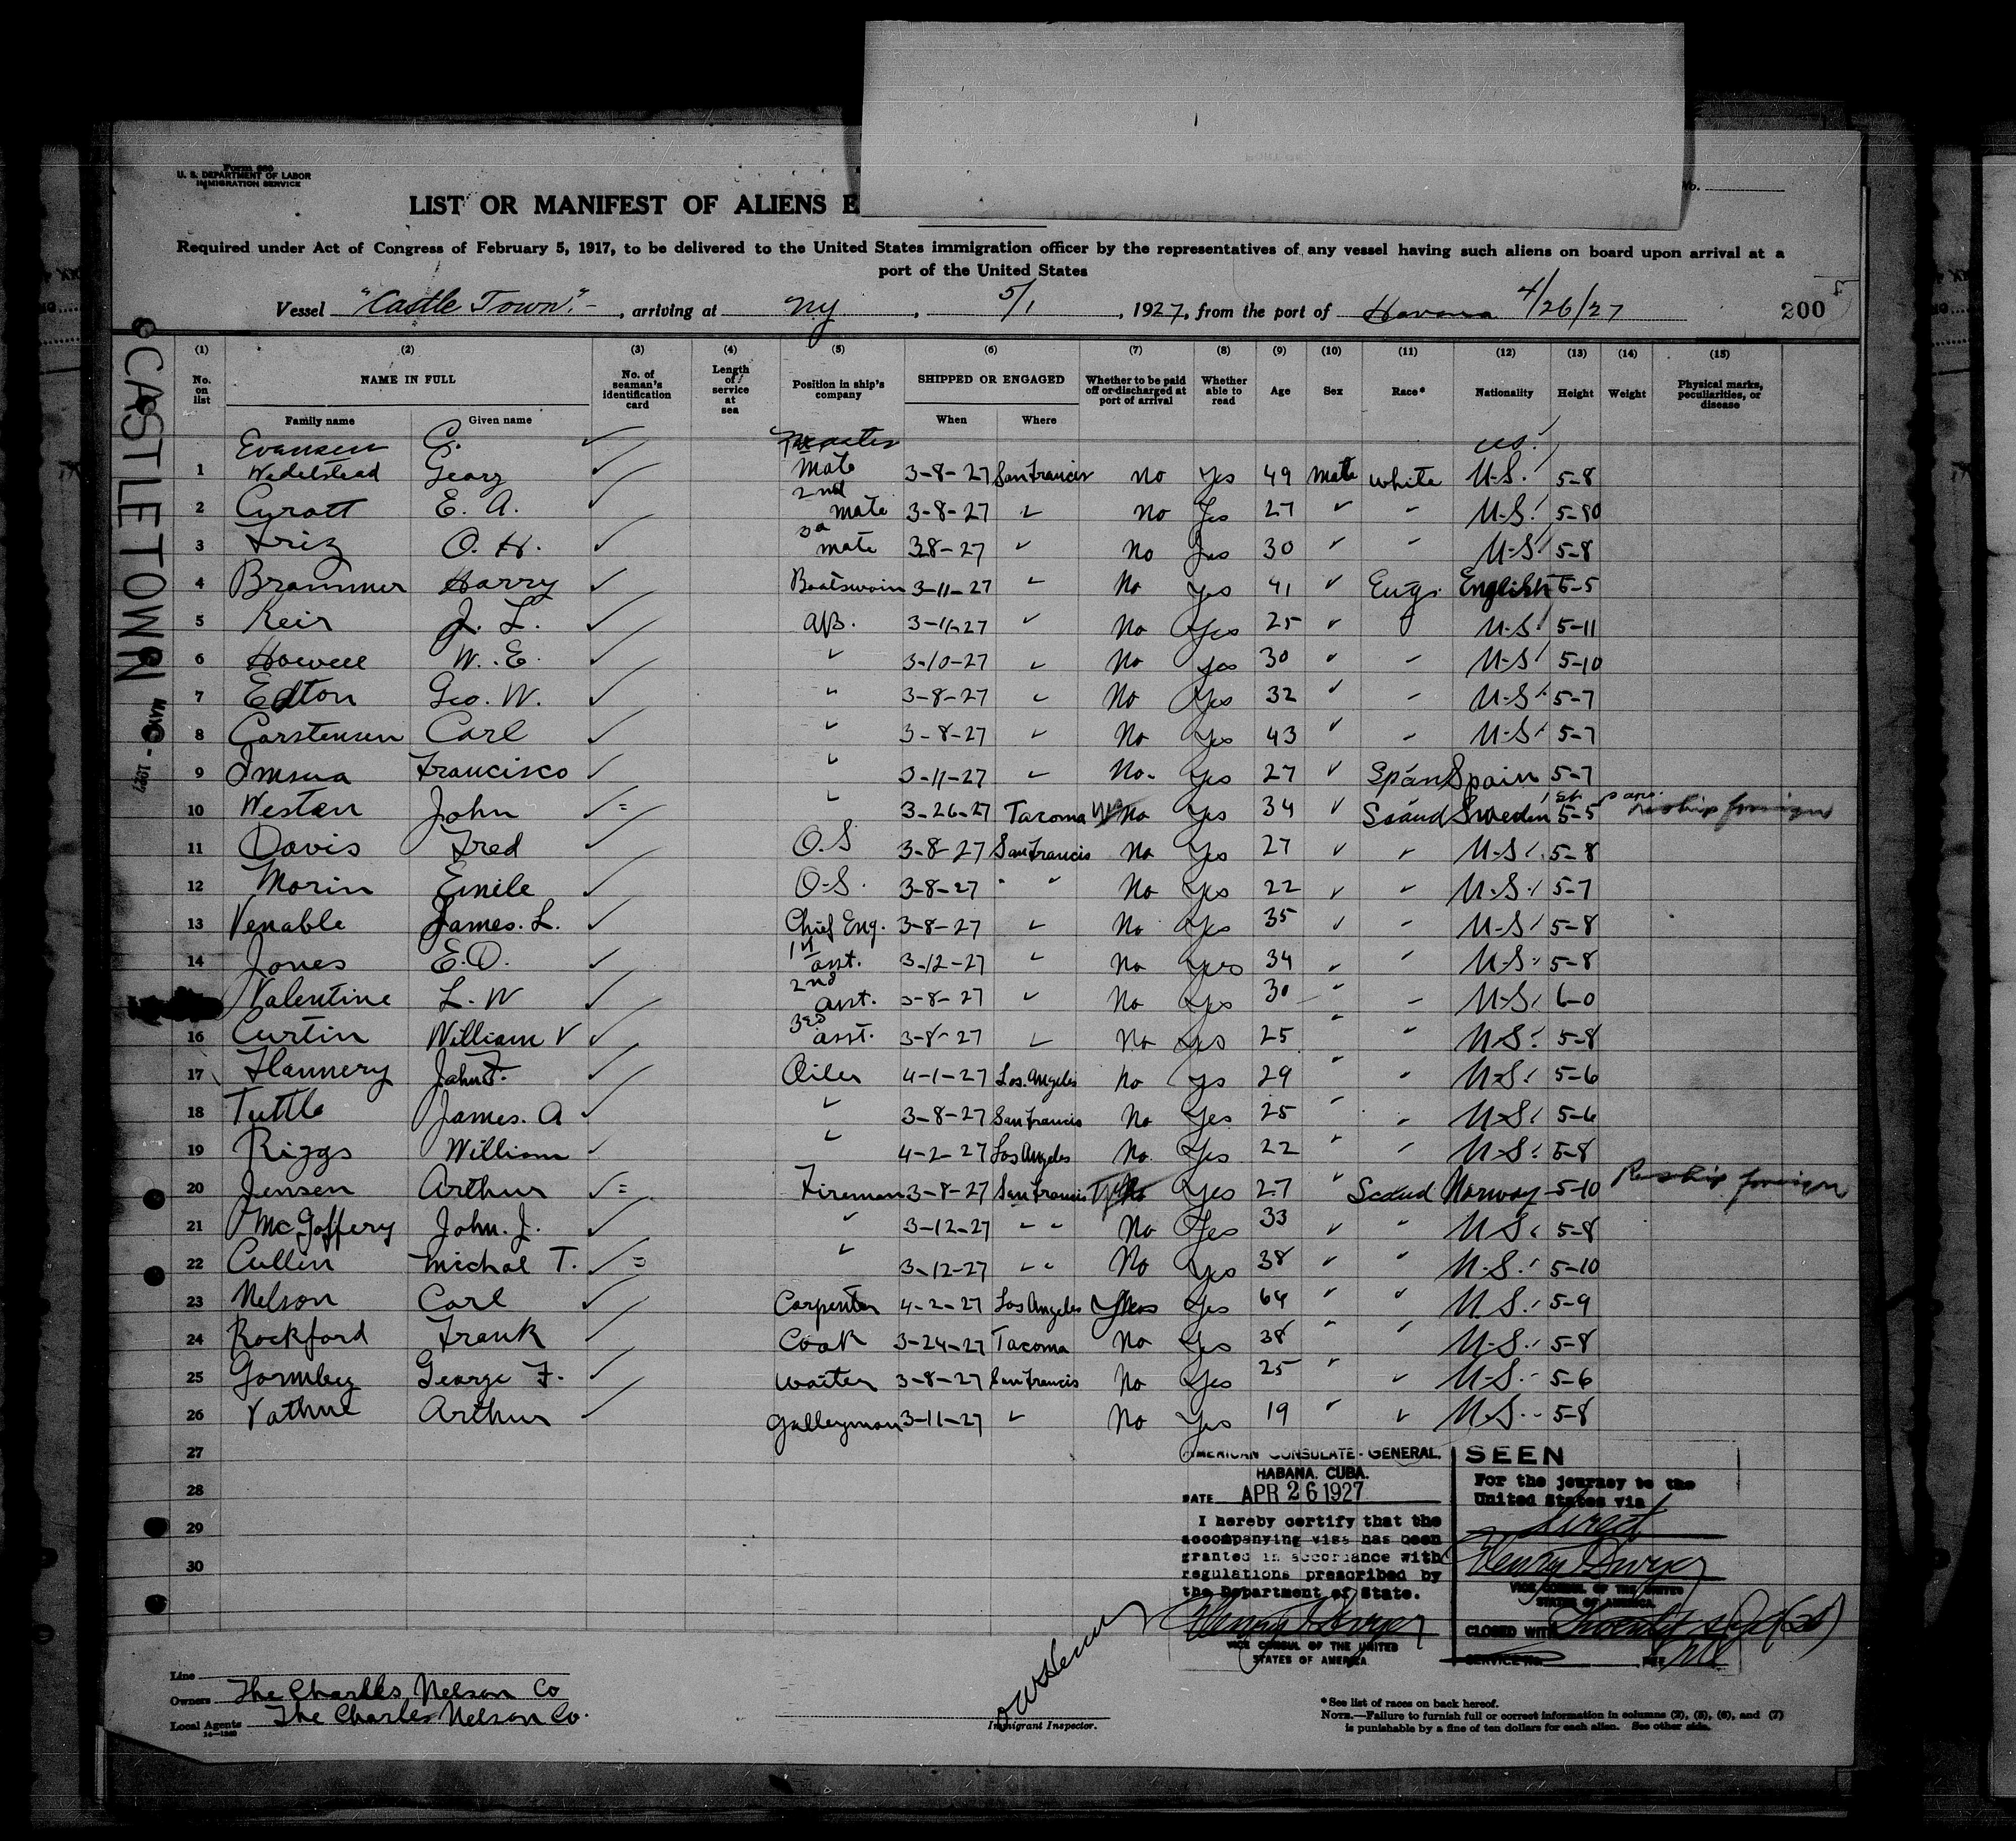 Form 680
U. S. DEPARTMENT OF LABOR
IMMIGRATION SERVICE
No.
LIST OR MANIFEST OF ALIENS E
Required under Act of Congress of February 5, 1917, to be delivered to the United States immigration officer by the representatives of any vessel having such aliens on board upon arrival at a
port of the United States
Vessel "Castle Town" - , arriving at NY , 5/1 , 1927, from the port of Havana 4/26/27 200
CASTLETOWN
(1) (2) (3) (4) (5) (6) (7) (8) (9) (10) (11) (12) (13) (14) (15)
No. on list NAME IN FULL Family name Given name No. of seaman's identification card Length of service at sea Position in ship's company SHIPPED OR ENGAGED When Where Whether to be paid off or discharged at port of arrival Whether able to read Age Sex Race* Nationality Height Weight Physical marks, peculiarities, or disease
Evansen G. ✓ Master US
1 Wedelstead Georg ✓ Mate 3-8-27 San Francis No Yes 49 Male White U.S. 5-8
2 Cyratt E. A. ✓ 2nd mate 3-8-27 " No Yes 27 ✓ " U.S. 5-80
3 Friz O. H. ✓ 3d mate 38-27 " No Yes 30 ✓ " U.S. 5-8
4 Brammer Harry ✓ Boatswain 3-11-27 " No Yes 41 ✓ Eugs. English 5-5
5 Keir J. L. ✓ AB. 3-11-27 " No Yes 25 ✓ " U.S. 5-11
6 Howell W. E. ✓ " 3-10-27 " No Yes 30 ✓ " U.S. 5-10
7 Edton Geo. W. ✓ " 3-8-27 " No Yes 32 ✓ " U.S. 5-7
8 Carstensen Carl ✓ " 3-8-27 " No Yes 43 ✓ " U.S. 5-7
9 Imsua Francisco ✓ " 3-11-27 " No. Yes 27 ✓ Span Spain 5-7
10 Westan John ✓ = " 3-26-27 Tacoma No Yes 34 ✓ Scand Sweden 5-5 reship foreign
11 Davis Fred ✓ O.S 3-8-27 San Francis No Yes 27 ✓ " U.S. 5-8
12 Morin Emile ✓ O.S. 3-8-27 " " No Yes 22 ✓ " U.S. 5-7
13 Venable James. L. ✓ Chief Eng. 3-8-27 " No Yes 35 ✓ " U.S. 5-8
14 Jones E.O. ✓ 1st asst. 3-12-27 " No Yes 34 ✓ " U.S. 5-8
Valentine L. W ✓ 2nd asst. 3-8-27 " No Yes 30 " " U.S. 6-0
16 Curtin William V ✓ 3rd asst. 3-8-27 " No Yes 25 " " U.S. 5-8
17 Flannery John F. ✓ Oiler 4-1-27 Los Angeles No Yes 29 " " U.S. 5-6
18 Tuttle James. A ✓ " 3-8-27 San Francis No Yes 25 " " U.S. 5-6
19 Riggs William ✓ " 4-2-27 Los Angeles No. Yes 22 " " U.S. 5-8
20 Jensen Arthur ✓ = Fireman 3-8-27 San Francis Yes 27 " Scand Norway 5-10 Reship foreign
21 McGoffery John. J. ✓ " 3-12-27 " " No Yes 33 ✓ " U.S. 5-8
22 Cullen Michal T. ✓ = " 3-12-27 " " No Yes 38 ✓ " U.S. 5-10
23 Nelson Carl ✓ Carpenter 4-2-27 Los Angeles Yes 64 " " U.S. 5-9
24 Rockford Frank ✓ Cook 3-24-27 Tacoma No Yes 38 " " U.S. 5-8
25 Gormley George F. ✓ Waiter 3-8-27 San Francis No Yes 25 " " U.S. 5-6
26 Vathne Arthur ✓ Galleyman 3-11-27 " No Yes 19 " " U.S. 5-8
27
28
29
30
AMERICAN CONSULATE-GENERAL.
HABANA. CUBA.
DATE APR 26 1927
I hereby certify that the
accompanying visa has been
granted in accordance with
regulations prescribed by
the Department of State.
VICE CONSUL OF THE UNITED
STATES OF AMERICA
SEEN
For the journey to the
United States via
direct
VICE CONSUL OF THE UNITED
STATES OF AMERICA.
CLOSED WITH
SERVICE NO. FEE
Line
Owners The Charles Nelson Co
Local Agents The Charles Nelson Co.
Immigrant Inspector.
*See list of races on back hereof.
NOTE.—Failure to furnish full or correct information in columns (2), (5), (6), and (7)
is punishable by a fine of ten dollars for each alien. See other side.